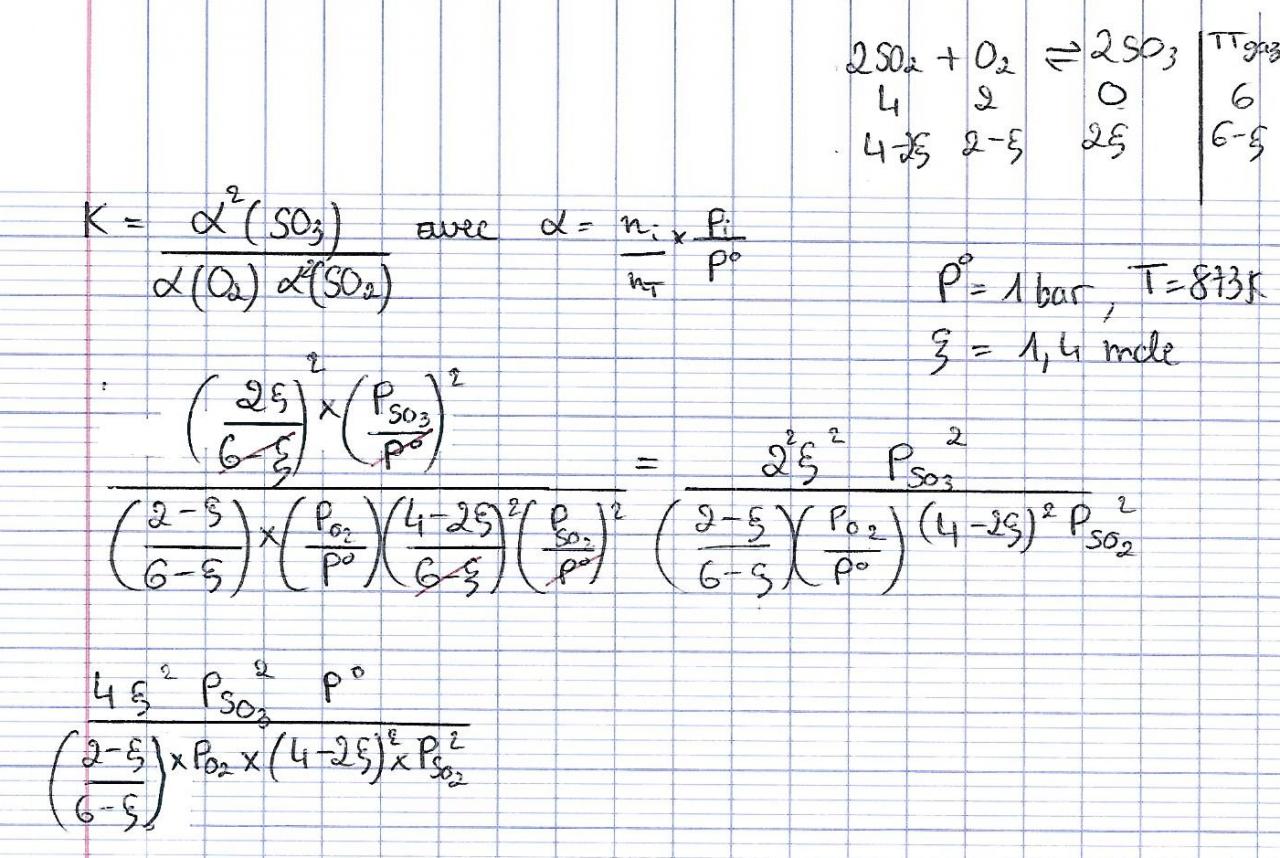 2SO₂ + O₂ ⇌ 2SO₃ | TTgaz
4 2 0 | 6
4-2ξ 2-ξ 2ξ | 6-ξ
K = α²(SO₃) / α(O₂) α²(SO₂) avec α = nᵢ/n_T × Pᵢ/P°
P° = 1 bar, T = 873K
ξ = 1,4 mole
(2ξ/(6-ξ))² × (P_SO₃/P°)² / ((2-ξ)/(6-ξ)) × (P_O₂/P°) ((4-2ξ)/(6-ξ))² (P_SO₂/P°)² = 2²ξ² P_SO₃² / ((2-ξ)/(6-ξ)) (P_O₂/P°) (4-2ξ)² P_SO₂²
4ξ² P_SO₃² P° / ((2-ξ)/(6-ξ)) × P_O₂ × (4-2ξ)² × P_SO₂²